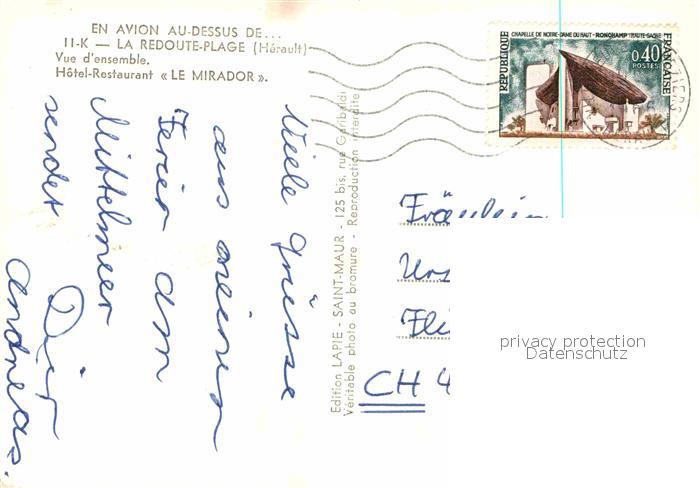 EN AVION AU-DESSUS DE...
11-K — LA REDOUTE-PLAGE (Hérault)
Vue d'ensemble.
Hôtel-Restaurant « LE MIRADOR ».
RÉPUBLIQUE FRANÇAISE
CHAPELLE DE NOTRE-DAME DU HAUT - RONCHAMP HAUTE-SAÔNE
0,40
POSTES
Viele Grüsse
aus meinen
Ferien am
Mittelmeer
sendet
Dir
Andreas.
Edition LAPIE - SAINT-MAUR - 125 bis, rue Garibaldi
Véritable photo au bromure - Reproduction interdite
Fräulein
Urs
CH 4
privacy protection
Datenschutz